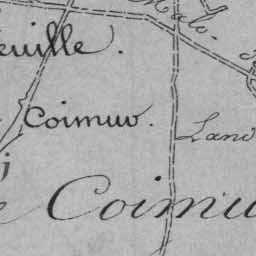 Malo.
euille.
Coimuv.
Land
e Coimu